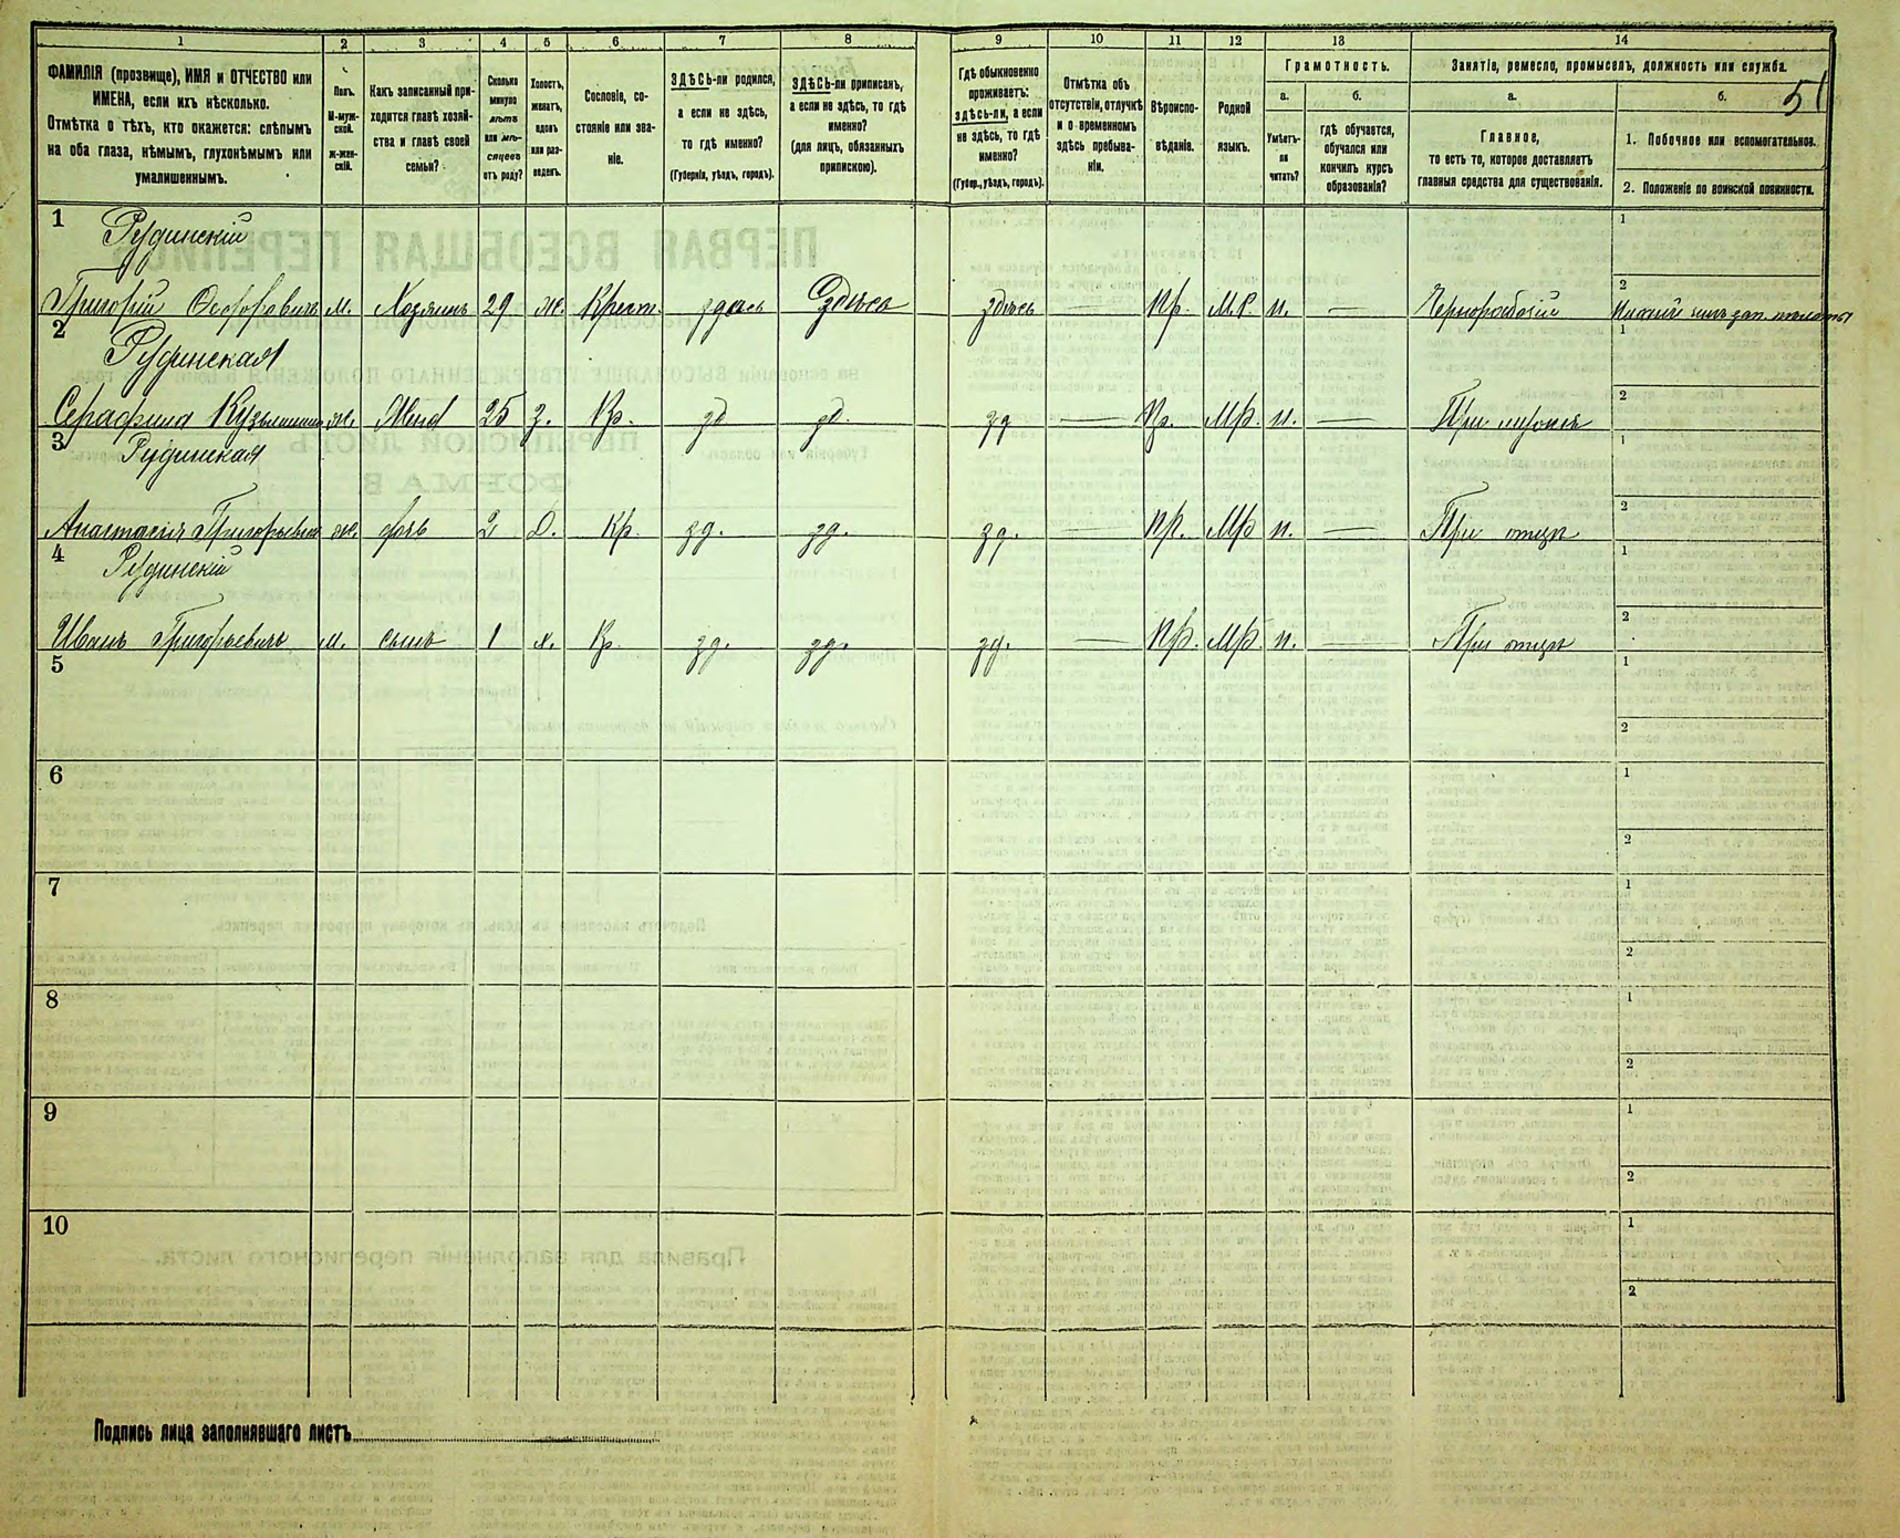 1 2 3 4 5 6 7 8 9 10 11 12 13 14
ФАМИЛІЯ (прозвище), ИМЯ и ОТЧЕСТВО или
ИМЕНА, если ихъ нѣсколько.
Отмѣтка о тѣхъ, кто окажется: слѣпымъ
на оба глаза, нѣмымъ, глухонѣмымъ или
умалишеннымъ.
Полъ.
М-муж-
ской.
Ж-жен-
скій.
Какъ записанный при-
ходится главѣ хозяй-
ства и главѣ своей
семьи?
Сколько
минуло
лѣтъ
или мѣ-
сяцевъ
отъ роду?
Холостъ,
женатъ,
вдовъ
или раз-
веденъ.
Сословіе, со-
стояніе или зва-
ніе.
ЗДѢСЬ-ли родился,
а если не здѣсь,
то гдѣ именно?
(Губернія, уѣздъ, городъ).
ЗДѢСЬ-ли приписанъ,
а если не здѣсь, то гдѣ
именно?
(для лицъ, обязанныхъ
припискою).
Гдѣ обыкновенно
проживаетъ:
здѣсь-ли, а если
не здѣсь, то гдѣ
именно?
(Губер., уѣздъ, городъ).
Отмѣтка объ
отсутствіи, отлучкѣ
и о временномъ
здѣсь пребыва-
ніи.
Вѣроиспо-
вѣданіе.
Родной
языкъ.
Грамотность.
а.
Умѣетъ-
ли
читать?
б.
гдѣ обучается,
обучался или
кончилъ курсъ
образованія?
Занятіе, ремесло, промыселъ, должность или служба.
51
а.
Главное,
то есть то, которое доставляетъ
главныя средства для существованія.
б.
1. Побочное или вспомогательное.
2. Положеніе по воинской повинности.
1 Рудинскій 1
2
Григорій м. Хозяинъ 29 ж. Крест. здѣсь Здѣсь здѣсь — Пр. М.Р. н. — Чернорабочій
2 Рудинская 1
2
Серафима ж. Жена 25 З. Кр. зд зд. зд — Пр. Мр. н. —
3 Рудинская 1
2
Анастасія Григорьевна ж. дочь 2 Д. Кр. зд. зд. зд. — Пр. Мр н. — При отцѣ
4 Рудинскій 1
2
Иванъ Григорьевичъ м. сынъ 1 х. Кр. зд. зд. зд. — Пр. Мр. н. — При отцѣ
5 1
2
6 1
2
7 1
2
8 1
2
9 1
2
10 1
2
Подпись лица заполнявшаго листъ